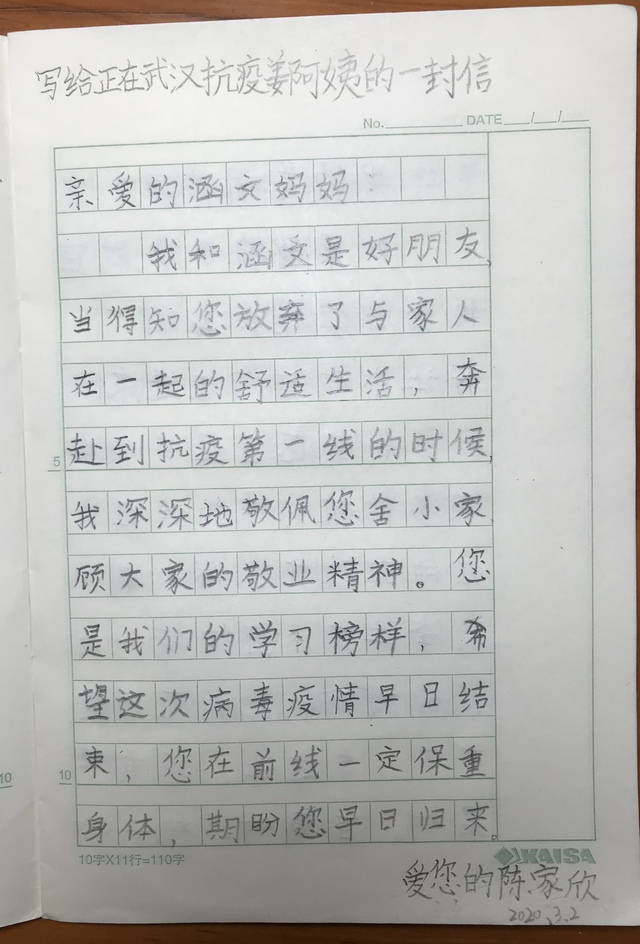 写给正在武汉抗疫姜阿姨的一封信
No. DATE / /
亲爱的涵文妈妈:
我和涵文是好朋友,
当得知您放弃了与家人
在一起的舒适生活,奔
5
赴到抗疫第一线的时候,
我深深地敬佩您舍小家
顾大家的敬业精神。您
是我们的学习榜样,希
望这次病毒疫情早日结
10
10
束,您在前线一定保重
身体,期盼您早日归来
10字X11行=110字
KAISA
爱您的陈家欣
2020.3.2